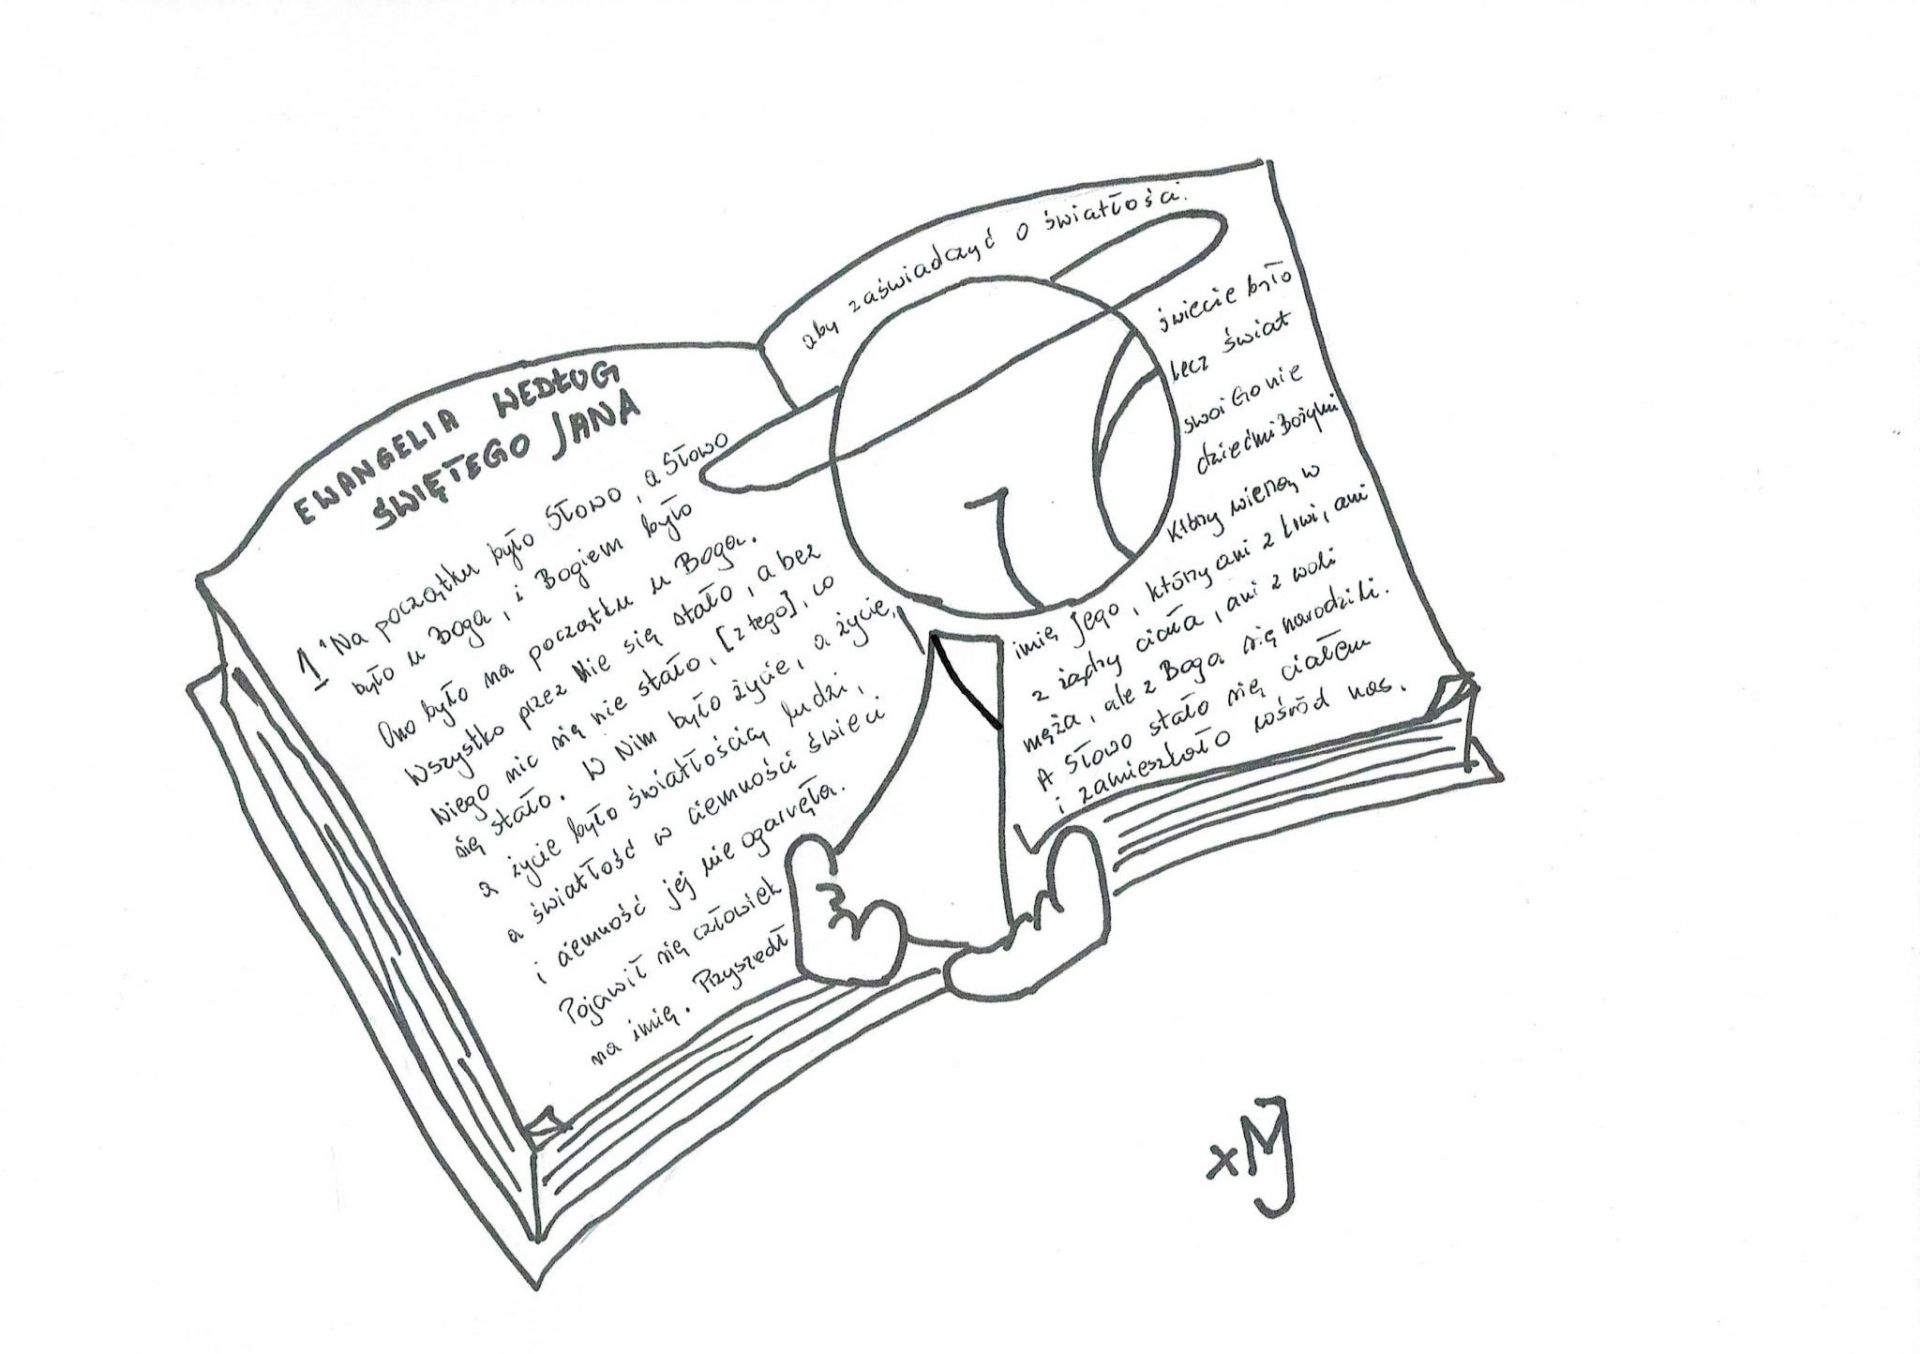 EWANGELIA WEDŁUG
ŚWIĘTEGO JANA
1 ¹Na początku było Słowo, a Słowo
było u Boga, i Bogiem było
Ono było na początku u Boga.
Wszystko przez Nie się stało, a bez
Niego nic się nie stało, [z tego], co
się stało. W Nim było życie, a życie,
a życie było światłością ludzi,
a światłość w ciemności świeci
i ciemność jej nie ogarnęła.
Pojawił się człowiek
na imię. Przyszedł
aby zaświadczyć o światłości.
świecie było
lecz świat
swoi Go nie
dziećmi Bożymi
którzy wierzą w
imię Jego, którzy ani z krwi, ani
z żądzy ciała, ani z woli
męża, ale z Boga się narodzili.
A Słowo stało się ciałem
i zamieszkało wśród nas.
xMJ